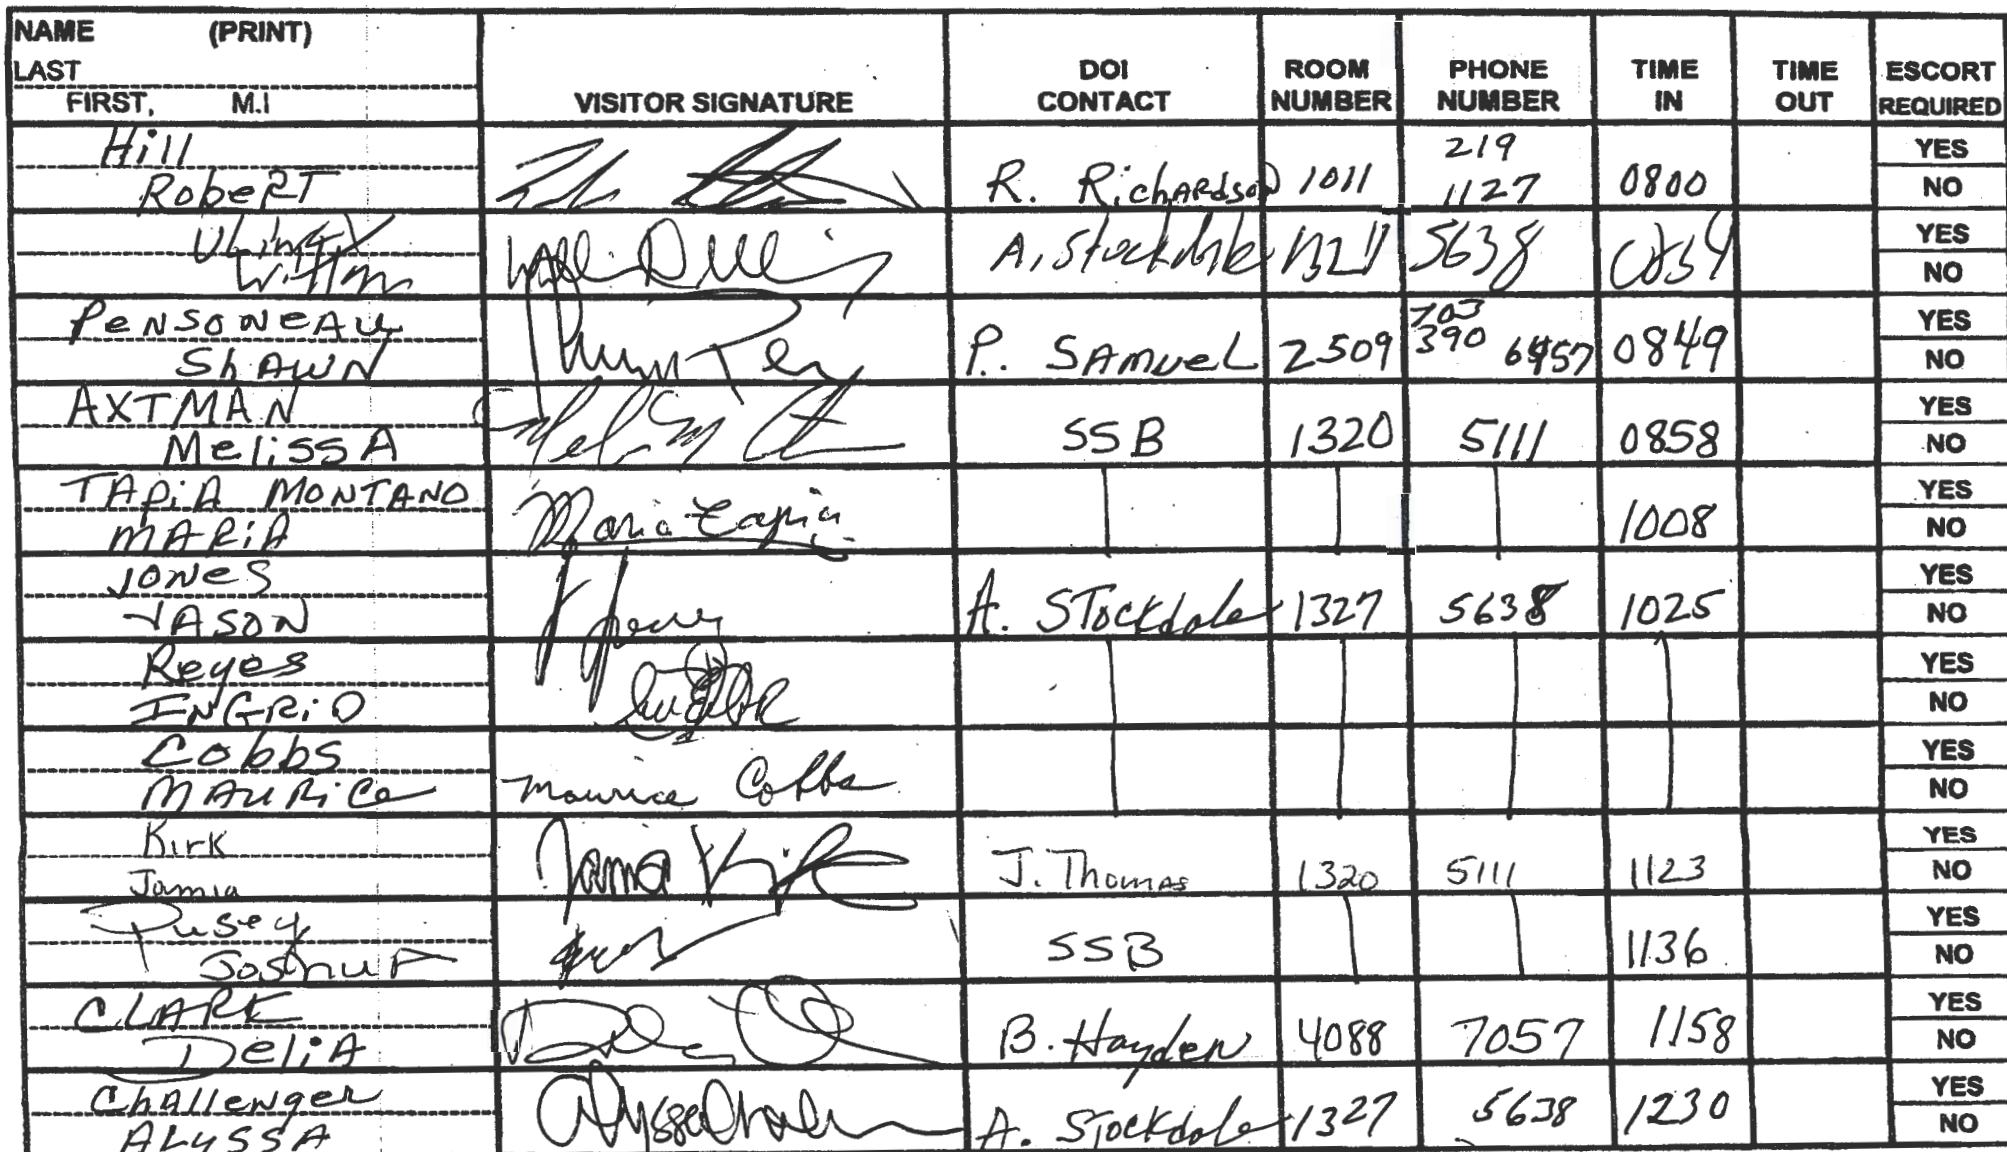 NAME (PRINT)
LAST
FIRST, M.I
VISITOR SIGNATURE
DOI CONTACT
ROOM NUMBER
PHONE NUMBER
TIME IN
TIME OUT
ESCORT REQUIRED
Hill
RobeRT
R. RichARdson 1011 219 1127 0800 YES
NO
A. Stockdale 5638 YES
NO
PeNSoNeAu
ShAWN
P. SAmueL 2509 703 390 6457 0849 YES
NO
AXTMAN
MeLiSSA
SSB 1320 5111 0858 YES
NO
TApiA MONTANO
MARiA
Maria Tapia
1008 YES
NO
JoNeS
JASON
A. STockdale 1327 5638 1025 YES
NO
Reyes
INGRiD
YES
NO
Cobbs
MAuRice
Maurice Cobbs
YES
NO
Kirk
Jamia
Jamia Kirk
J. Thomas 1320 5111 1123 YES
NO
Pusey
JoshuA
SSB 1136 YES
NO
CLARK
DeliA
B. Hayden 4088 7057 1158 YES
NO
ChALLenger
ALySSA
A. Stockdale 1327 5638 1230 YES
NO